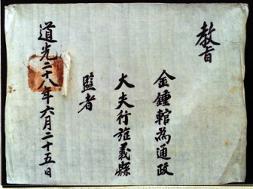 教旨
金鍾輨爲通政
大夫行旌義縣
監者
道光二十八年六月二十五日